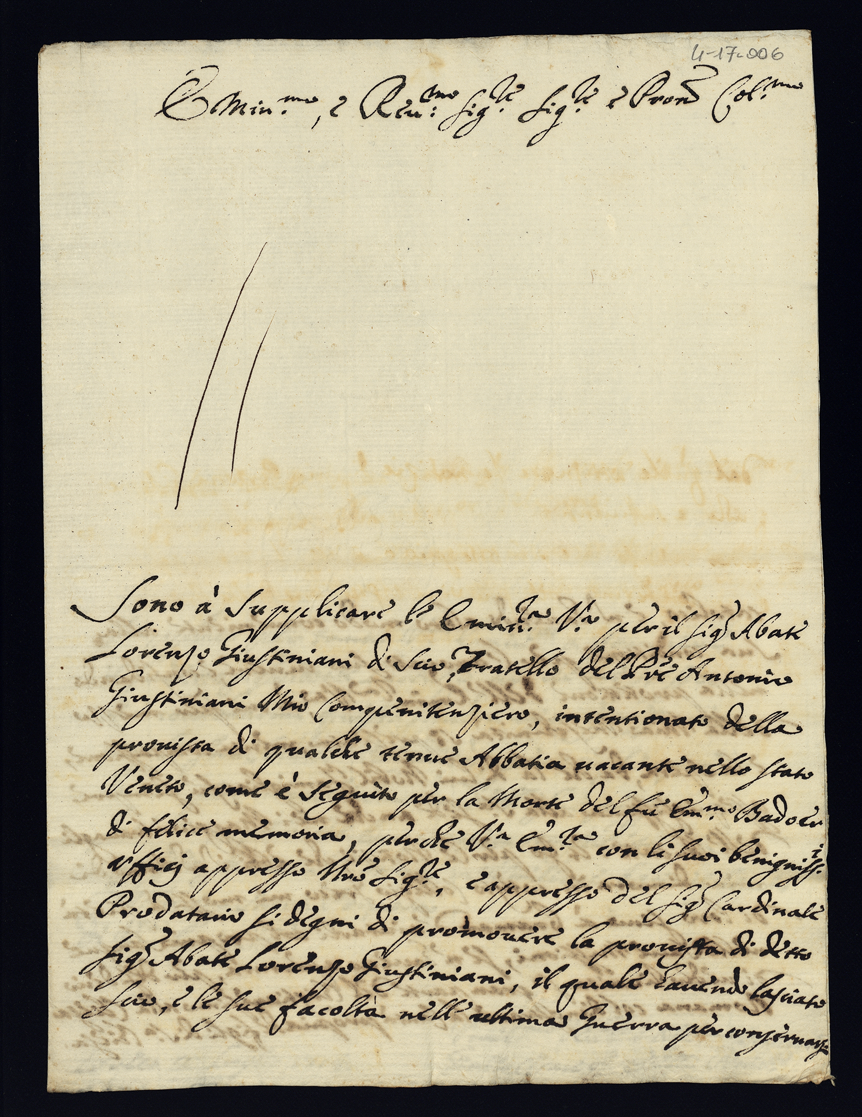 4-17-006
Emin.mo, e Reu.mo Sig.re Sig.re e Pron Col.mo
Sono à Supplicare le Emin.ze V.a per il Sig.r Abate
Lorenzo Giustiniani di Scio, Fratello del Pre Antonio
Giustiniani Mio Compenitenziero, intentionato della
prouista di qualche tenue Abbatia uacante nello stato
Veneto, come è Seguito per la Morte del fù Em.mo Badoer
di felice memoria, perche V.a Em.za con li suoi benigniss.i
Vfficij appresso Nro Sig.re, e appresso del Sig.r Cardinale
Prodatario si degni di promouere la prouista di detto
Sig.r Abate Lorenzo Giustiniani, il quale hauendo lasciato
Scio, e le sue facoltà nell' ultima Guerra per conseruarsi